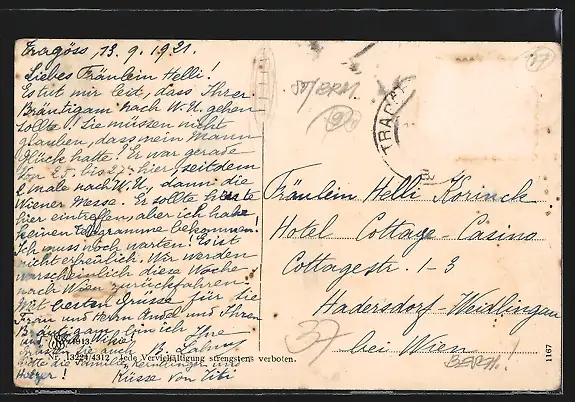 Tragöss, 13. 9. 1921.
Liebes Fräulein Helli!
Es tut mir leid, dass Ihrer
Bräutigam nach W. N. gehen
sollte! Sie müssen nicht
glauben, dass mein Mann
Glück hatte! Er war gerade
von 25. bis 27. hier, seitdem
2 male nach W. N., dann die
Wiener Messe. Er sollte heute
hier eintreffen, aber ich habe
keinen Telegramme bekommen!
Ich muss noch warten! Es ist
nicht erfreulich. Wir werden
warscheinlich diese Woche
nach Wien zurückfahren.
Mit besten Grüsse für die
Frau und Herrn und Ihren
Bräutigam bin ich Ihre
Sie auch
bitte die Familie und
Holzer! Küsse von Titi
1913
Nr. 13224/4312 Jede Vervielfältigung strengstens verboten.
TRAG
Fräulein Helli Korinck
Hotel Cottage-Casino
Cottagestr. 1-3
Hadersdorf-Weidlingau
bei Wien
37
1167